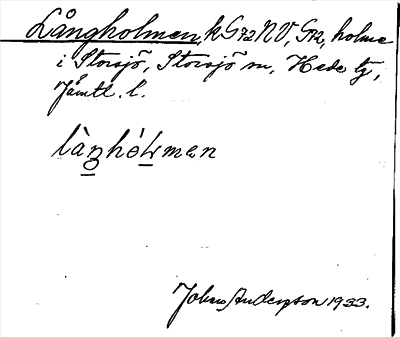 Långholmen, k G72NV, G72, holme
i Storsjö, Storsjö sn, Hede tg,
Jämtl. l.
làŋhólmen
Johan Anderson 1933.